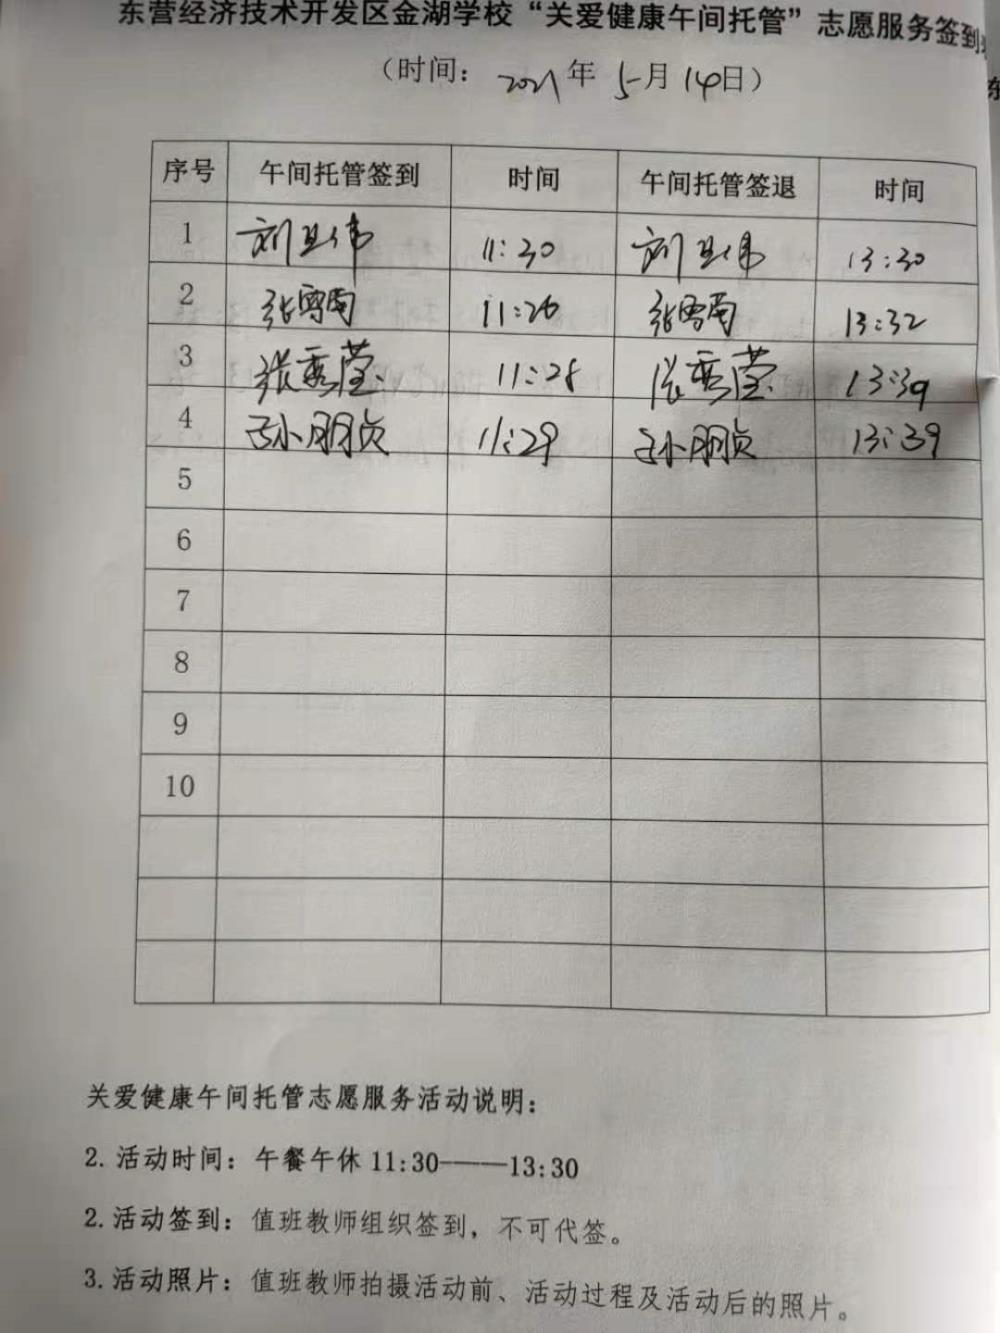 东营经济技术开发区金湖学校“关爱健康午间托管”志愿服务签到
（时间： 2021 年 5 月 14日）
东
序号 午间托管签到 时间 午间托管签退 时间
1 刘卫伟 11:30 刘卫伟 13:30
2 张雪南 11:26 张雪南 13:32
3 张秀莹 11:28 张秀莹 13:39
4 孙朋贞 11:29 孙朋贞 13:39
5
6
7
8
9
10
关爱健康午间托管志愿服务活动说明：
2. 活动时间：午餐午休 11:30——13:30
2. 活动签到：值班教师组织签到，不可代签。
3. 活动照片：值班教师拍摄活动前、活动过程及活动后的照片。